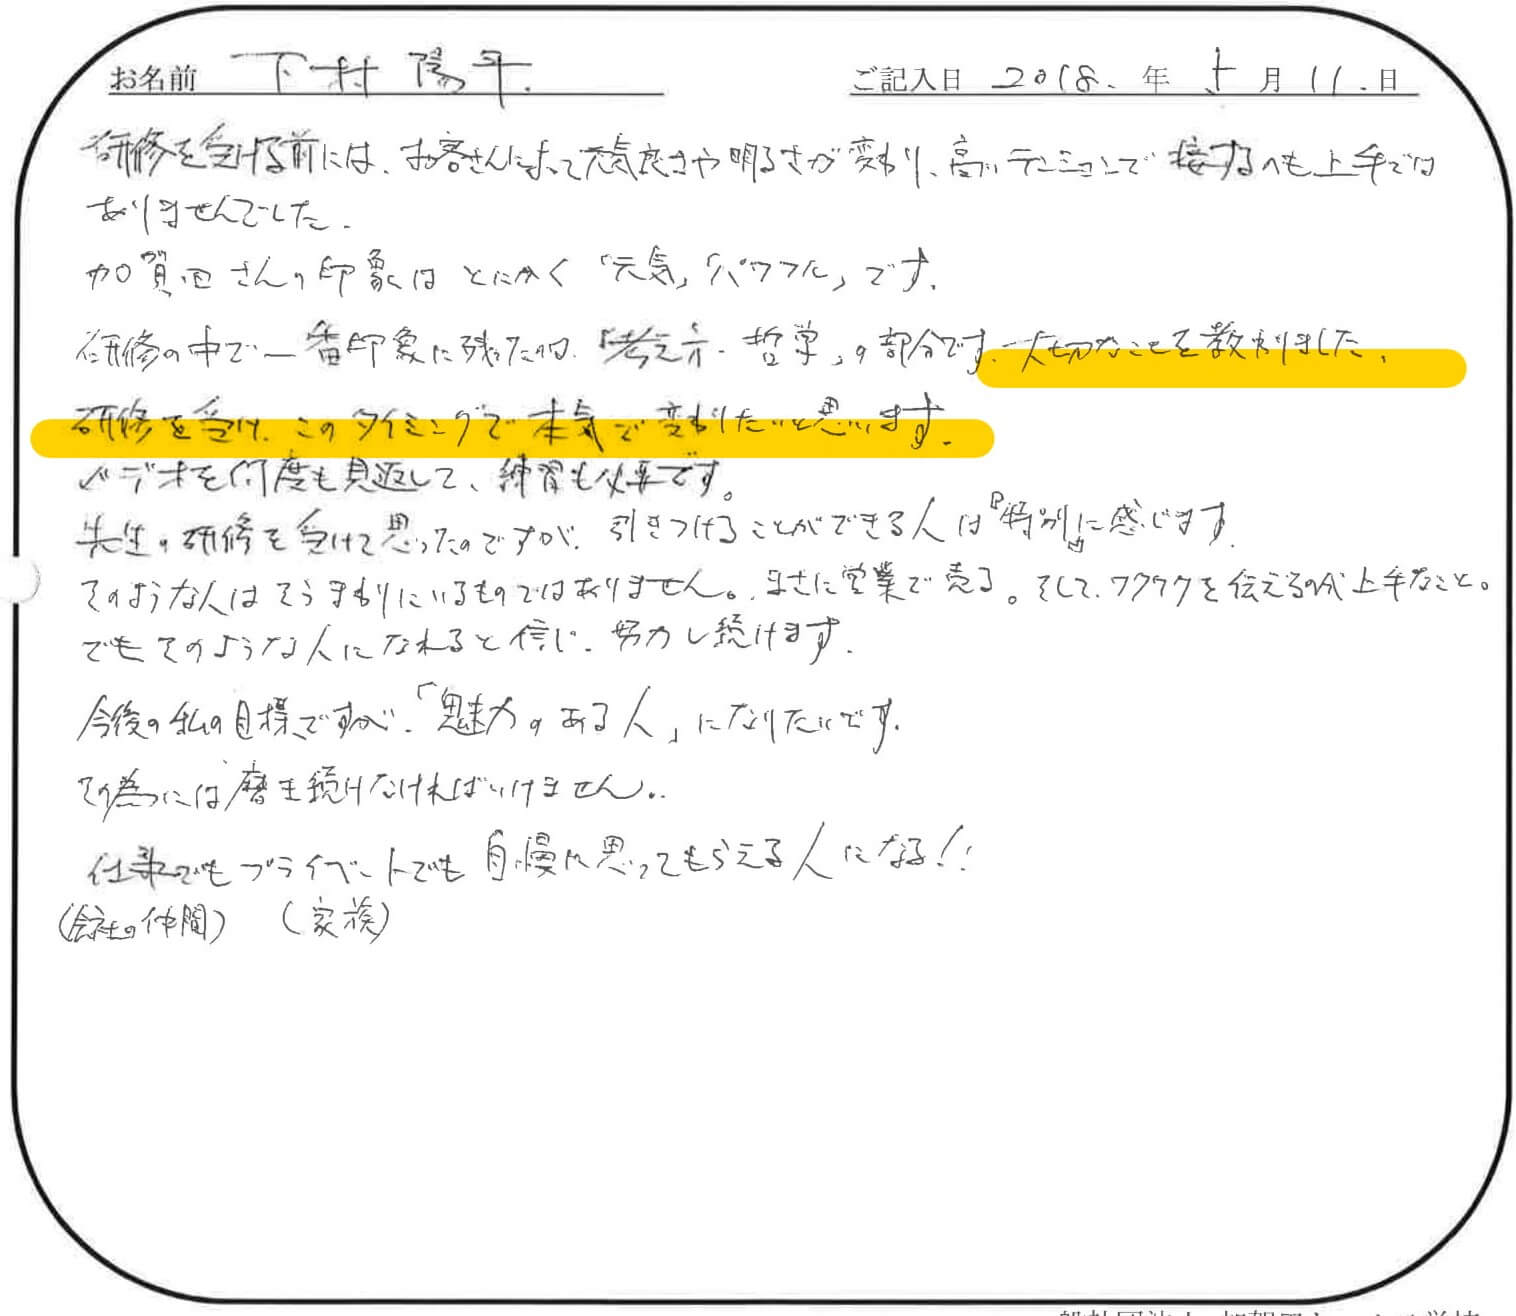 お名前 下村 陽平. ご記入日 2018. 年 5月 11.日
研修を受ける前には、お客さんによって元気良さや明るさが変わり、高いテンションで接するのも上手では
ありませんでした.
加賀田さんの印象はとにかく「元気」「パワフル」です.
研修の中で一番印象に残ったのは、「考え方・哲学」の部分です.大切なことを教わりました.
研修を受け、このタイミングで本気で変わりたいと思います.
ビデオを何度も見返して、練習も必要です。
先生の研修を受けて思ったのですが、引きつけることができる人は『特別』に感じます.
そのような人はそうまわりにいるものではありません。まさに営業で売る。そして、ワクワクを伝えるのが上手なこと。
でもそのような人になれると信じ、努力し続けます.
今後の私の目標ですが、「魅力のある人」になりたいです.
その為には磨き続けなければいけません.
仕事でもプライベートでも自慢に思ってもらえる人になる!!
(会社の仲間) (家族)